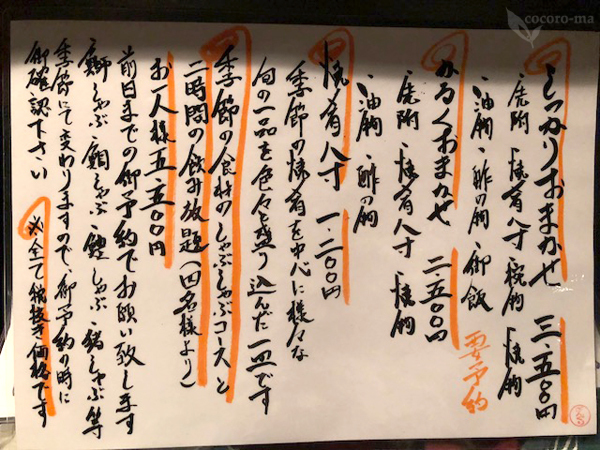 しっかりおまかせ 三、五〇〇円
・先附 ・焼肴八寸 ・椀物 ・焼物
・油物 ・酢の物 ・御飯
かるくおまかせ 二、五〇〇円
・先附 ・焼肴八寸 ・焼物
・油物 ・酢の物
要予約
焼肴八寸 一、二〇〇円
季節の焼肴を中心に様々な
旬の一品を色々と盛り込んだ一皿です
季節の食材のしゃぶしゃぶコースと
二時間の飲み放題（四名様より）
お一人様五、五〇〇円
前日までの御予約でお願い致します
鰤しゃぶ、鯛しゃぶ、鱧しゃぶ、猪しゃぶ等
季節にて変わりますので、御予約の時に
御確認下さい
※全て税抜き価格です
cocoro-ma